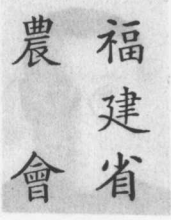 福建省
農會